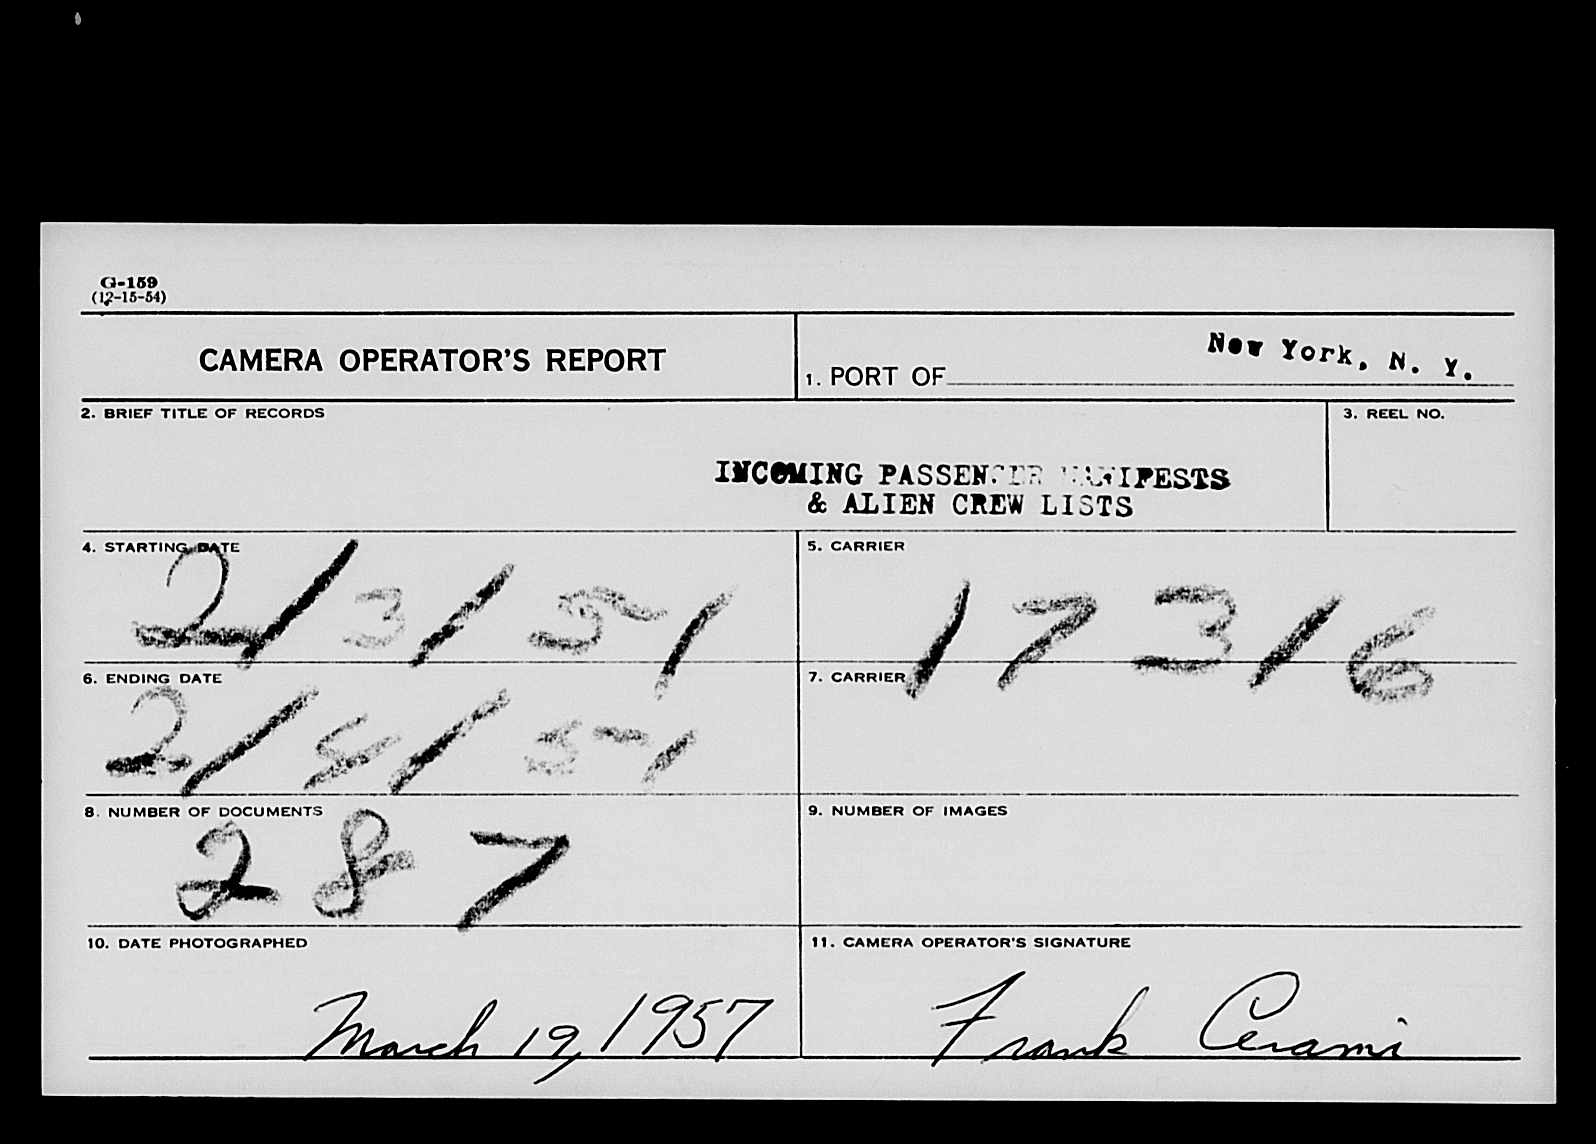 G-159
(12-15-54)
CAMERA OPERATOR'S REPORT
1. PORT OF New York, N. Y.
2. BRIEF TITLE OF RECORDS
3. REEL NO.
INCOMING PASSENGER MANIFESTS
& ALIEN CREW LISTS
4. STARTING DATE
2/3/51
5. CARRIER
17316
6. ENDING DATE
2/5/51
7. CARRIER
8. NUMBER OF DOCUMENTS
287
9. NUMBER OF IMAGES
10. DATE PHOTOGRAPHED
March 19, 1957
11. CAMERA OPERATOR'S SIGNATURE
Frank Cerami